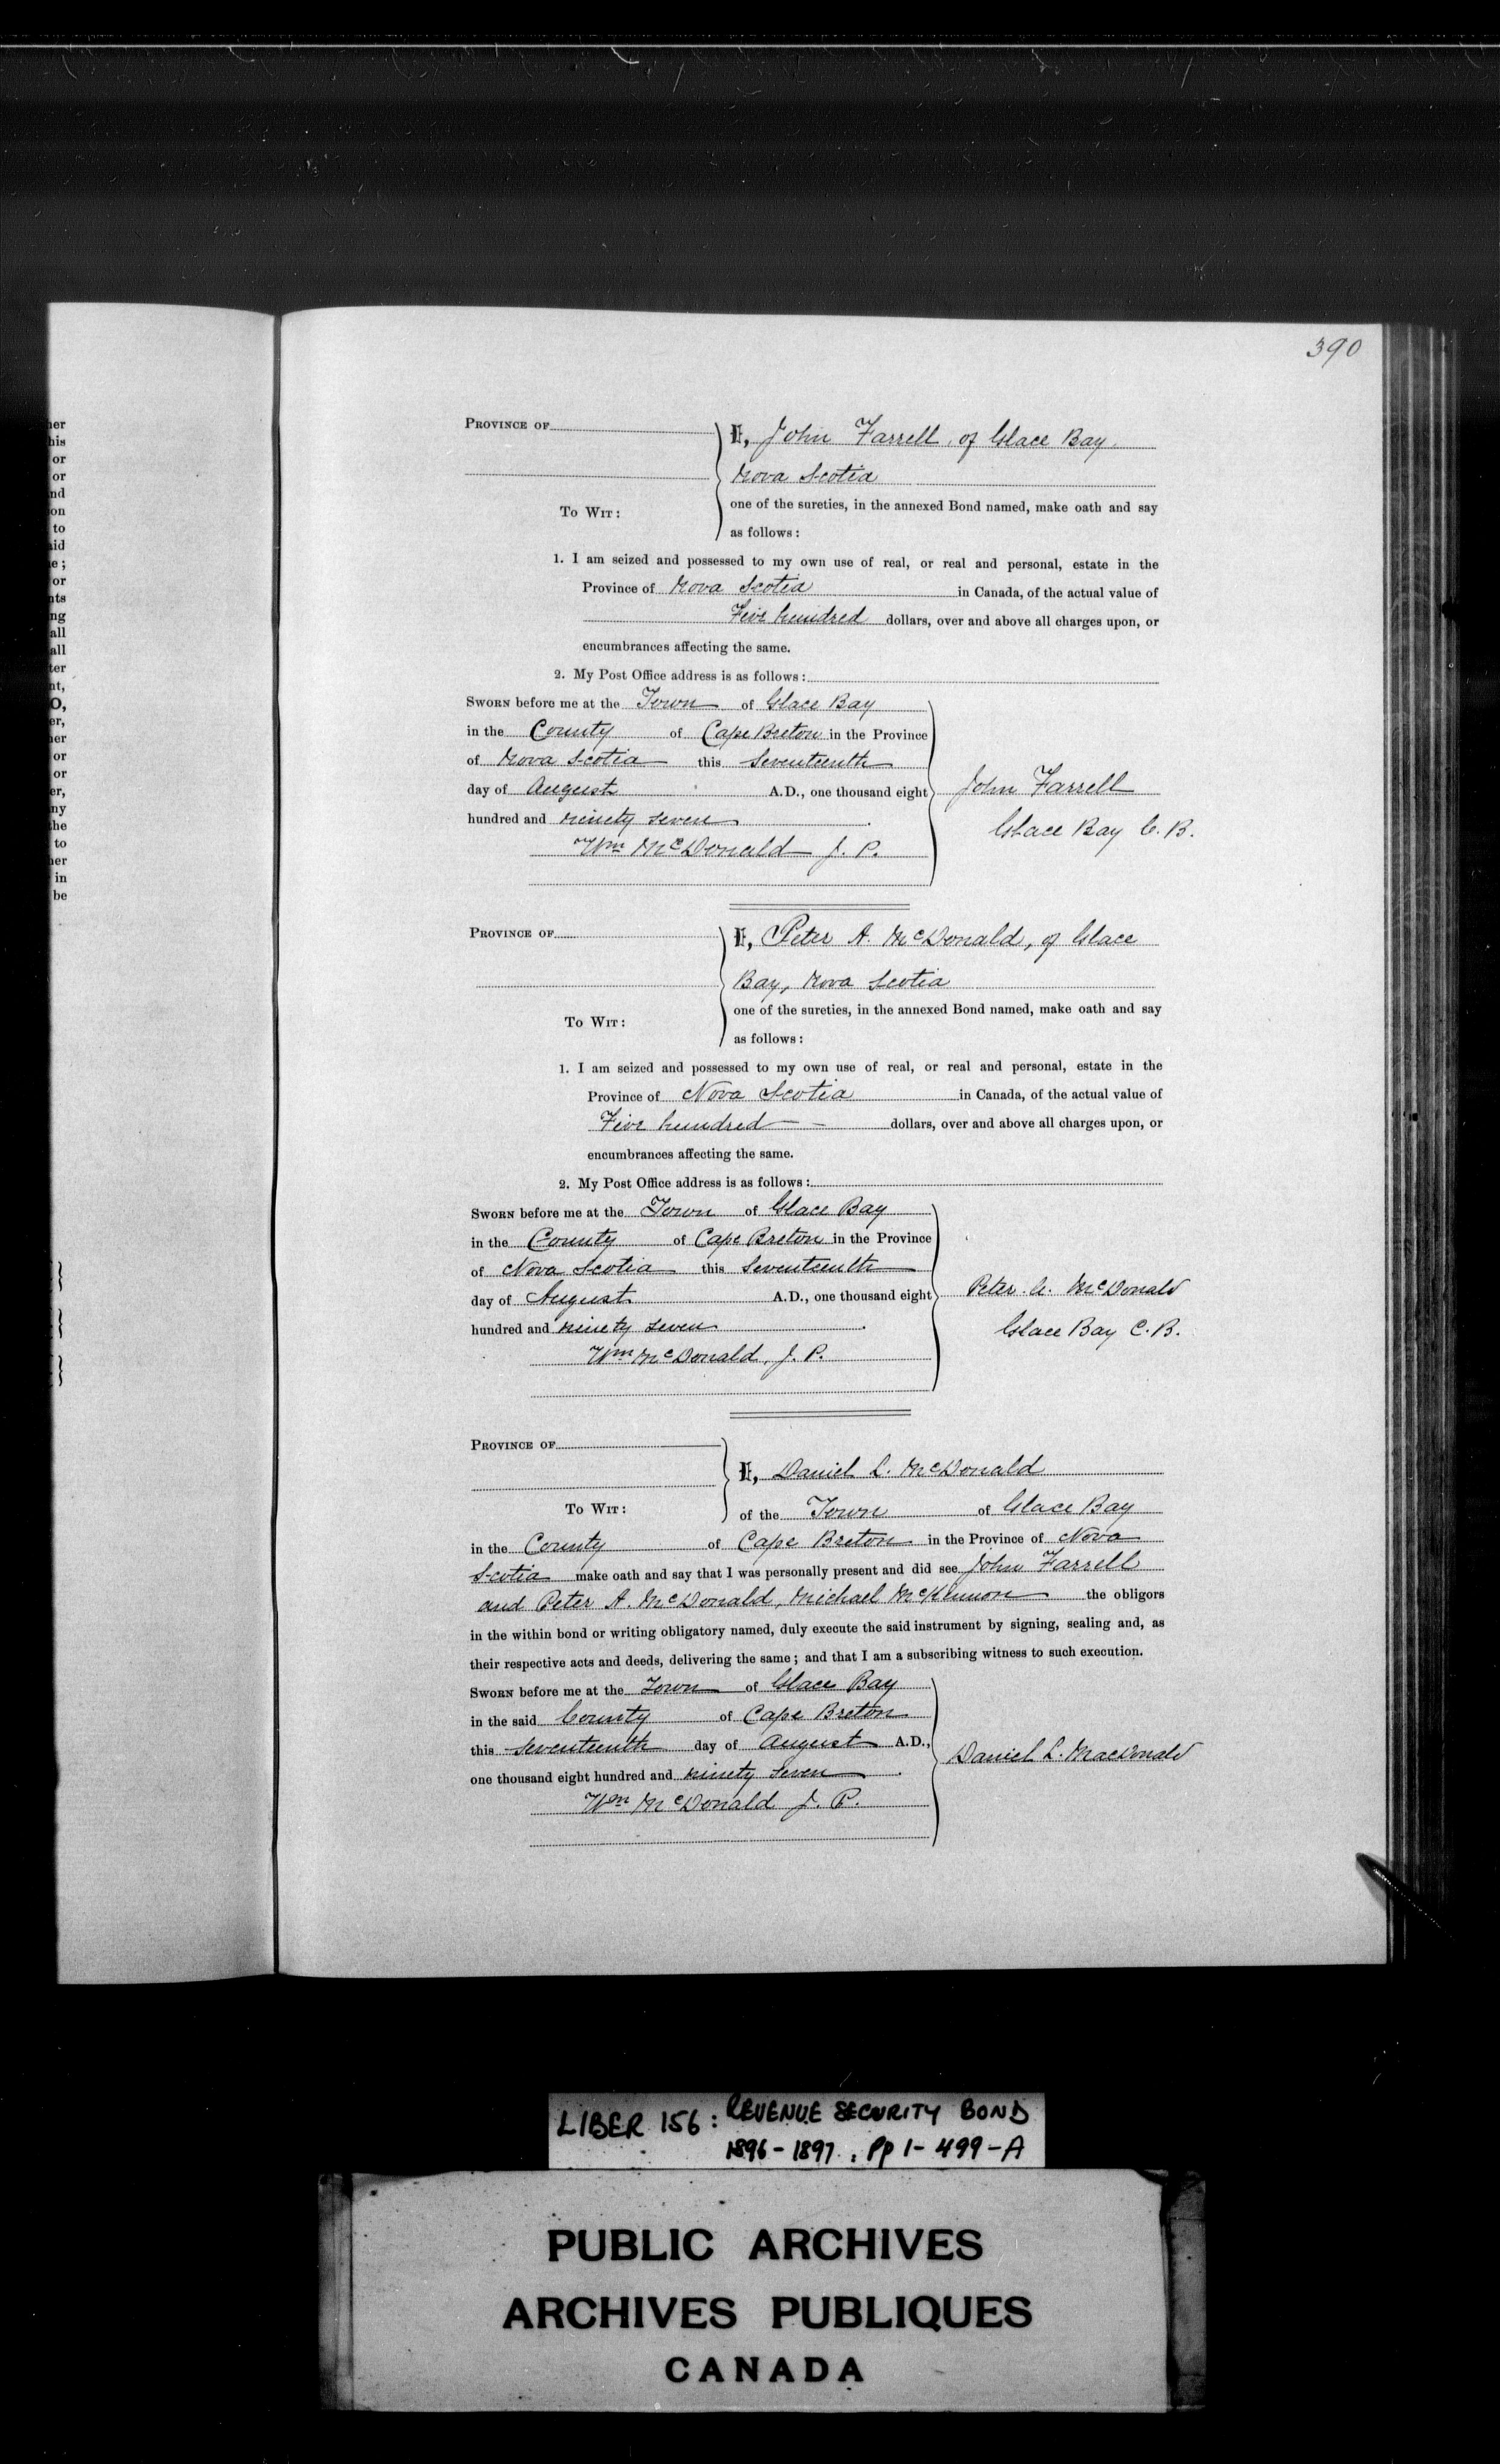 390
her
his
or
or
nd
on
to
aid
e;
or
nts
ng
all
all
ter
nt,
O,
er,
her
or
or
er,
ny
the
to
her
in
be
PROVINCE OF
I, John Farrell, of Glace Bay
Nova Scotia
TO WIT:
one of the sureties, in the annexed Bond named, make oath and say
as follows:
1. I am seized and possessed to my own use of real, or real and personal, estate in the
Province of Nova Scotia in Canada, of the actual value of
Five hundred dollars, over and above all charges upon, or
encumbrances affecting the same.
2. My Post Office address is as follows:
SWORN before me at the Town of Glace Bay
in the County of Cape Breton in the Province
of Nova Scotia this Seventeenth
day of August A.D., one thousand eight
hundred and ninety seven
Wm McDonald J. P.
John Farrell
Glace Bay C. B.
PROVINCE OF
I, Peter A. McDonald, of Glace
Bay, Nova Scotia
TO WIT:
one of the sureties, in the annexed Bond named, make oath and say
as follows:
1. I am seized and possessed to my own use of real, or real and personal, estate in the
Province of Nova Scotia in Canada, of the actual value of
Five hundred — — dollars, over and above all charges upon, or
encumbrances affecting the same.
2. My Post Office address is as follows:
SWORN before me at the Town of Glace Bay
in the County of Cape Breton in the Province
of Nova Scotia this Seventeenth
day of August A.D., one thousand eight
hundred and ninety seven
Wm McDonald, J. P.
Peter. A. McDonald
Glace Bay C. B.
PROVINCE OF
I, Daniel L. McDonald
TO WIT:
of the Town of Glace Bay
in the County of Cape Breton in the Province of Nova
Scotia make oath and say that I was personally present and did see John Farrell
and Peter A. McDonald, Michael McKennon the obligors
in the within bond or writing obligatory named, duly execute the said instrument by signing, sealing and, as
their respective acts and deeds, delivering the same; and that I am a subscribing witness to such execution.
SWORN before me at the Town of Glace Bay
in the said County of Cape Breton
this seventeenth day of August A.D.,
one thousand eight hundred and ninety seven
Wm McDonald J. P.
Daniel L. MacDonald
LIBER 156: REVENUE SECURITY BOND
1896-1897. Pp 1-499-A
PUBLIC ARCHIVES
ARCHIVES PUBLIQUES
CANADA